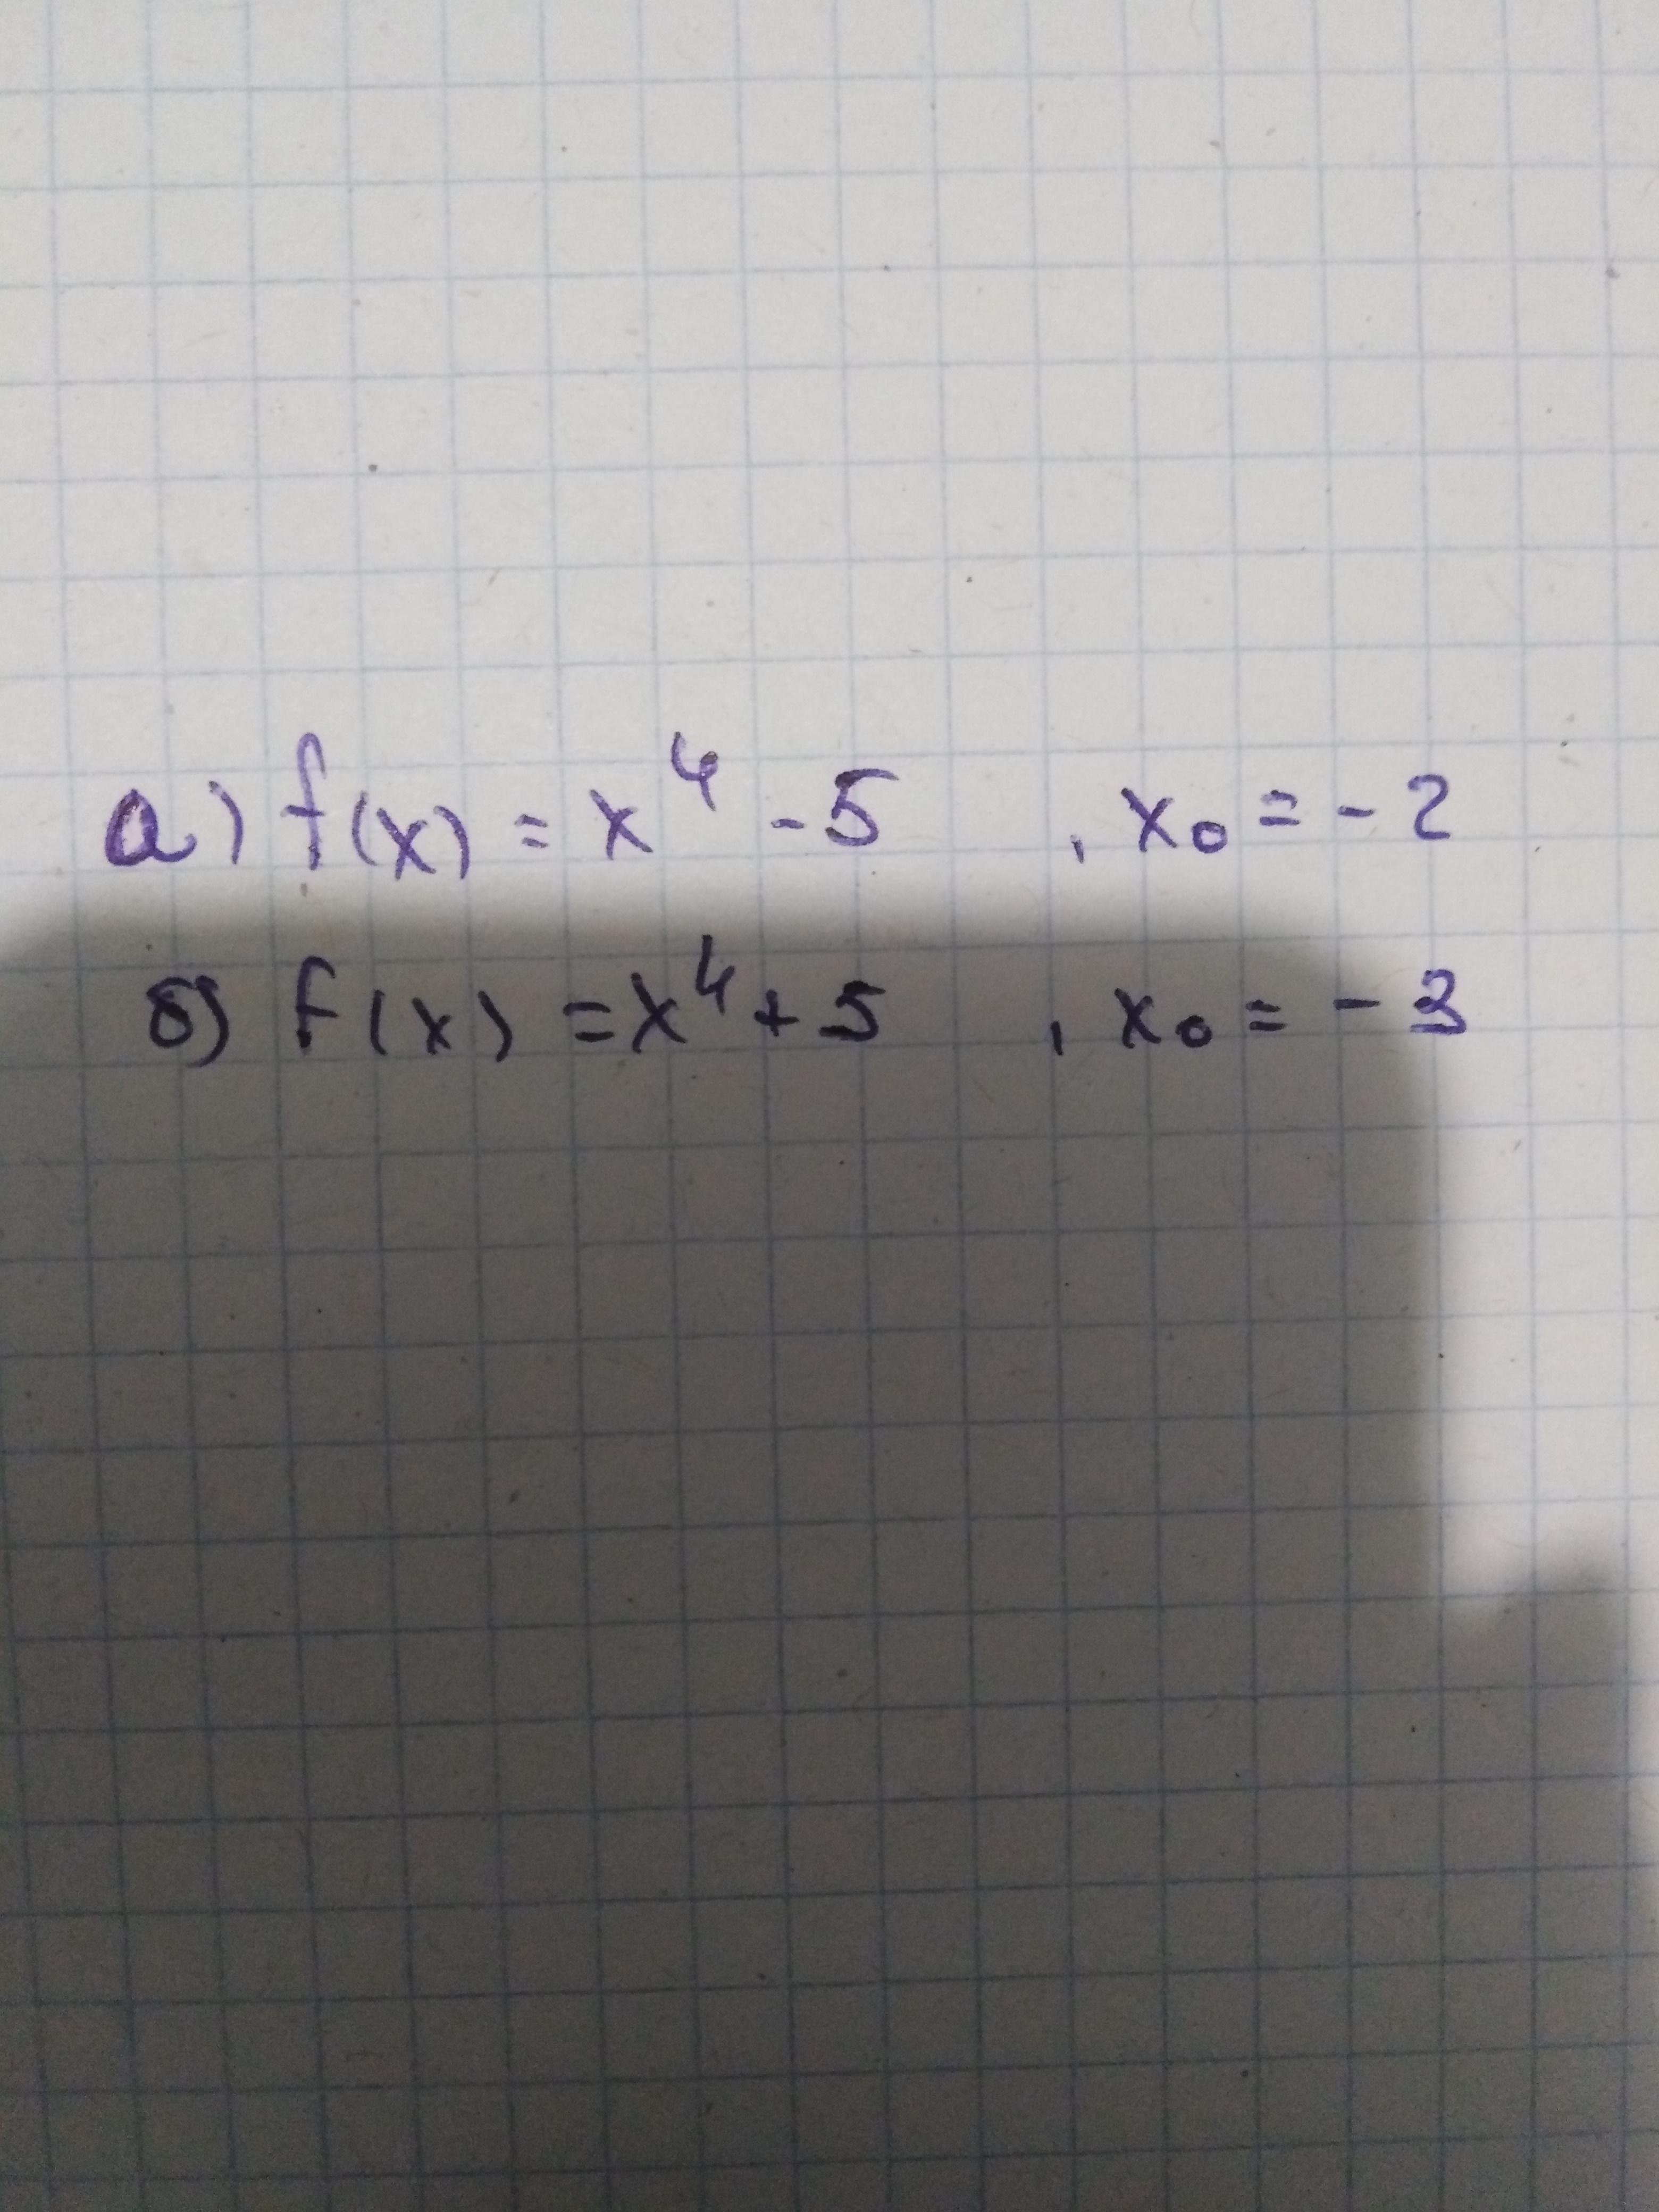 а) f(x) = x⁴ - 5 , x₀ = - 2
б) f(x) = x⁴ + 5 , x₀ = - 3